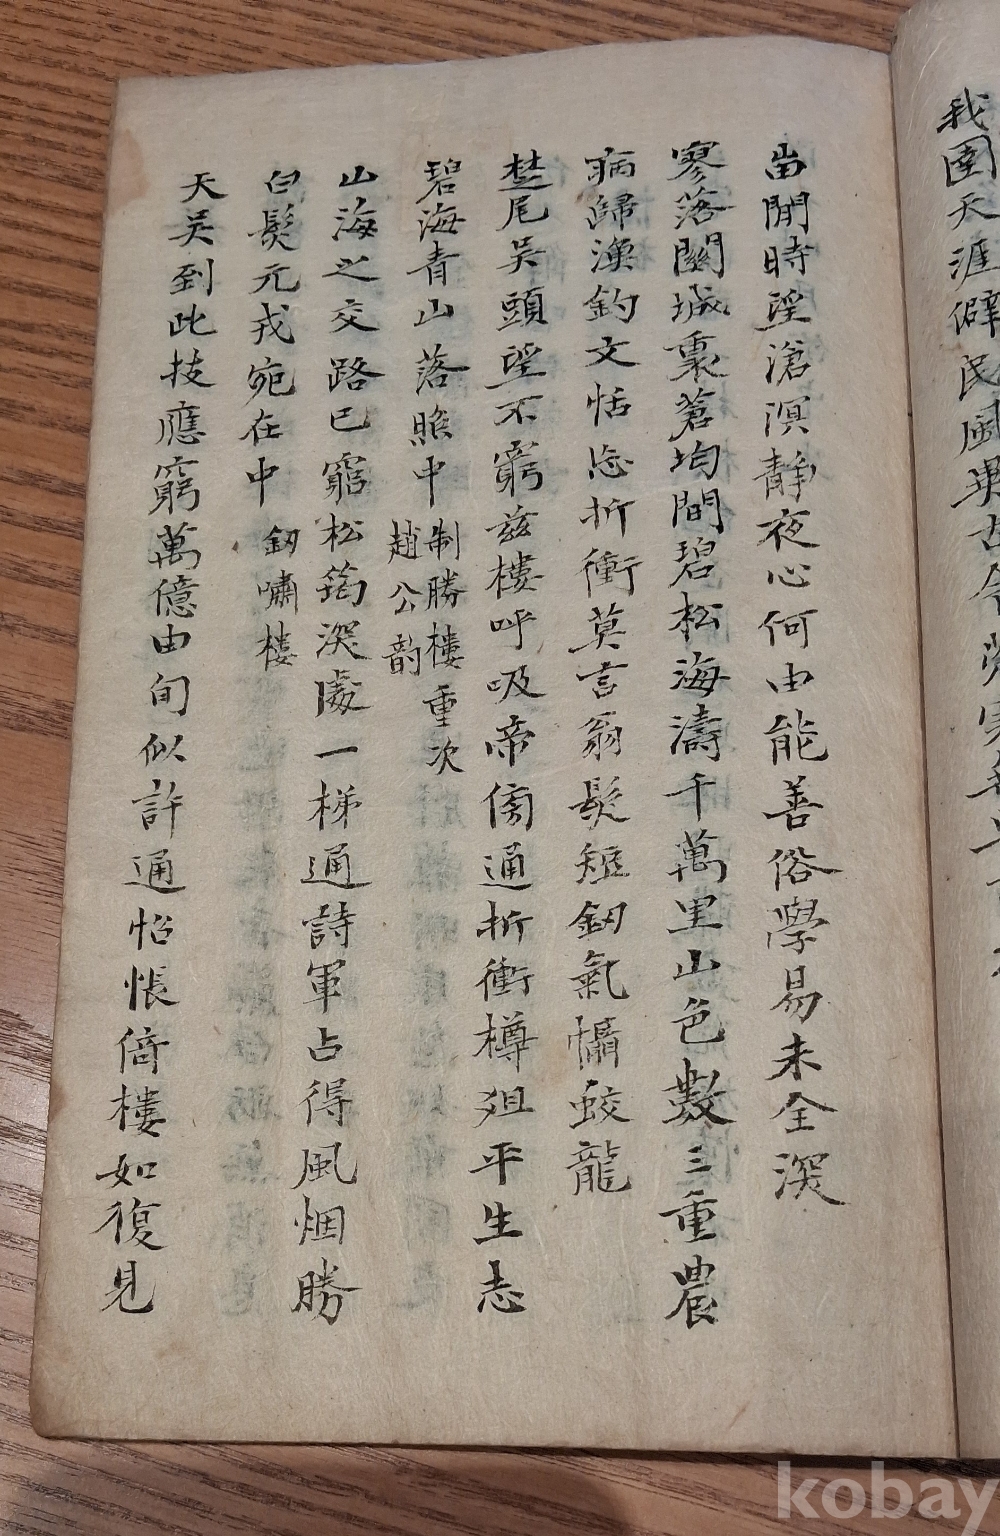 我國天涯僻民風異古今
當閒時望滄溟靜夜心何由能善俗學易未全深
寥落關城裏蒼均間碧松海濤千萬里山色數三重農
病歸漁釣文恬忘折衝莫言翁髮短釼氣慴蛟龍
楚尾吳頭望不窮茲樓呼吸帝傍通折衝樽俎平生志
碧海青山落照中
制勝樓重次
趙公韵
山海之交路已窮松筠深處一梯通詩軍占得風烟勝
白髮元戎宛在中
釼嘯樓
天吳到此技應窮萬億由旬似許通怊悵倚樓如復見
kobay